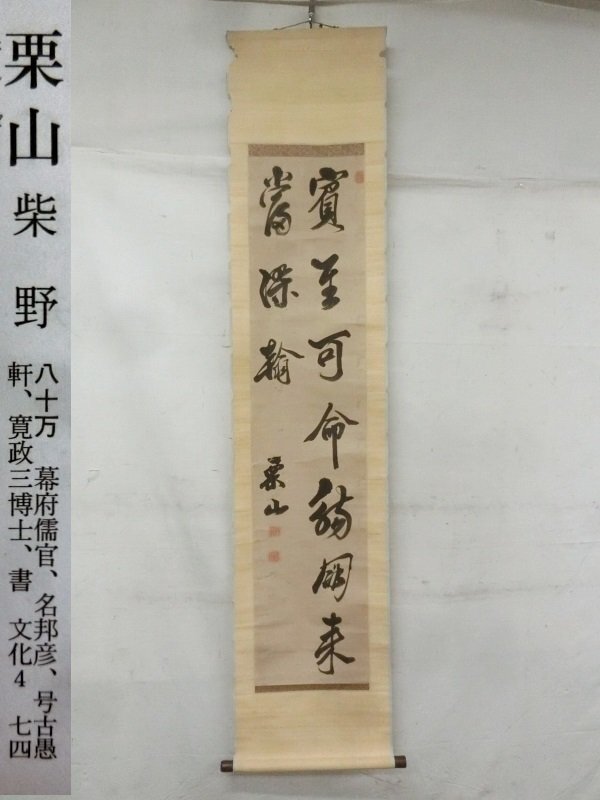 栗山 柴野
八十万 幕府儒官、名邦彦、号古愚
軒、寛政三博士、書 文化4 七四
賓至可命觴朋来
當染翰
栗山